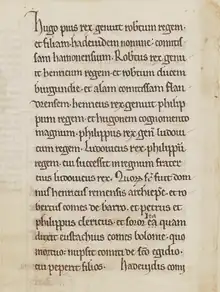 Hugo pius rex genuit robtum regem.
et filiam hadeuidem nomine. comitis
sam hainonensium. Robtus rex genu
it henricum regem. et robtum ducem
burgundie. et alam comitissam flan
drensem. henricus rex genuit philip
pum regem. et hugonem cognomento
magnum. philippus rex gen ludoui
cum regem. Ludouicus rex philippū
regem. cui successit in regnum frater
ludouicus rex. Quorū fr̄s fuit dom
nus henricus remensis archiep̄c. et ro
bertus comes de barro. et petrus et
philippus clericus. et soror ita ea quam
duxit eustachius comes bolonie. quo
mortuo. nupsit comiti de sc̄o egidio.
cui peperit filios. hadeuidis comi